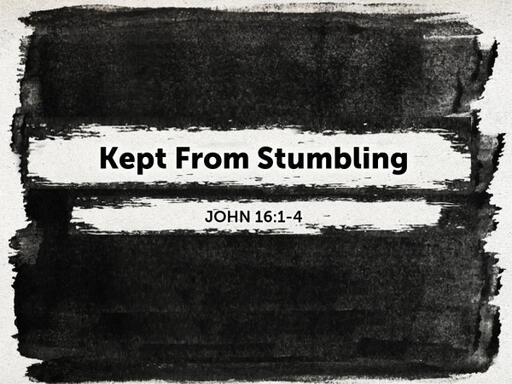 Kept From Stumbling
JOHN 16:1-4